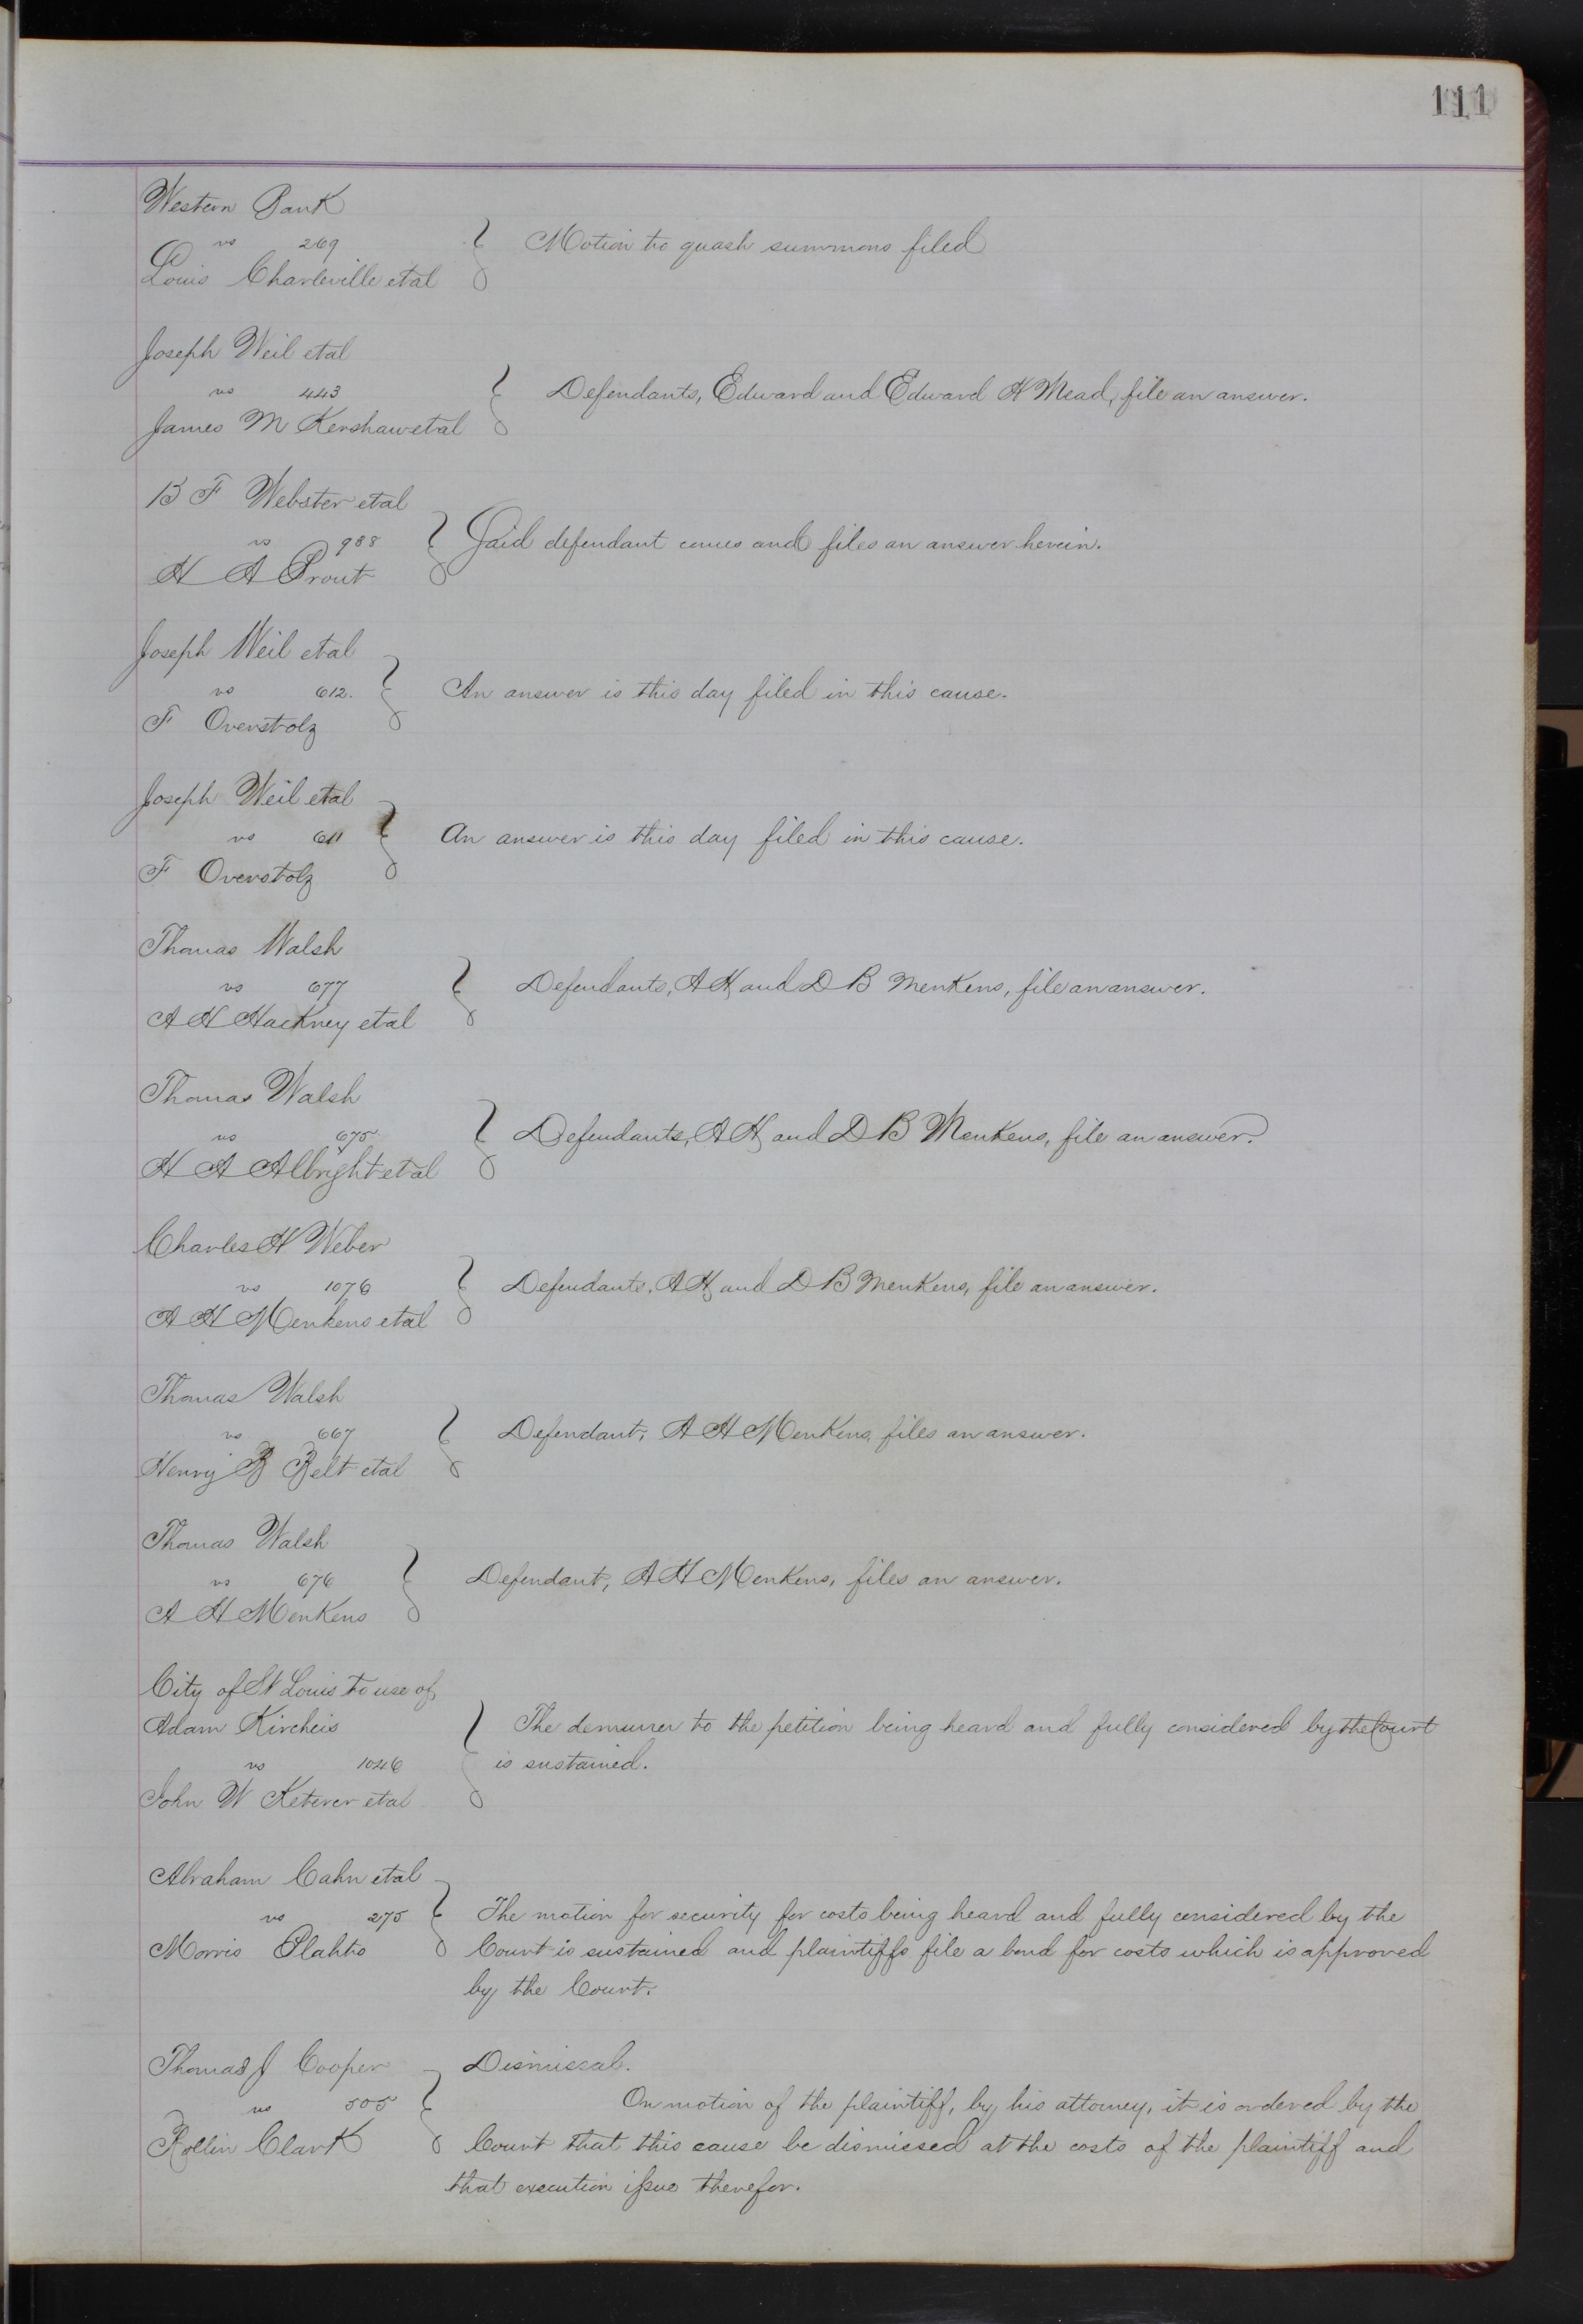 111
Western Bank
vs 269
Louis Charleville etal
Motion to quash summons filed
Joseph Weil etal
vs 443
James M Kershaw etal
Defendants, Edward and Edward H Mead, file an answer.
B F Webster etal
vs 988
H A Prout
Said defendant comes and files an answer herein.
Joseph Weil etal
vs 612.
F Overstolz
An answer is this day filed in this cause.
Joseph Weil etal
vs 611
F Overstolz
An answer is this day filed in this cause.
Thomas Walsh
vs 677
A H Hackney etal
Defendants, A H, and D B Menkens, file an answer.
Thomas Walsh
vs 675
H A Albright etal
Defendants, A H, and D B Menkens, file an answer.
Charles H Weber
vs 1076
A H Menkens etal
Defendants, A H, and D B Menkens, file an answer.
Thomas Walsh
vs 667
Henry B Belt etal
Defendant, A H Menkens, files an answer.
Thomas Walsh
vs 676
A H Menkens
Defendant, A H Menkens, files an answer.
City of St Louis to use of
Adam Kircheis
vs 1046
John W Keterer etal
The demurrer to the petition being heard and fully considered by the Court
is sustained.
Abraham Cahn etal
vs 275
Morris Plahto
The motion for security for costs being heard and fully considered by the
Court is sustained and plaintiffs file a bond for costs which is approved
by the Court.
Thomas J Cooper
vs 505
Rollin Clark
Dismissal.
On motion of the plaintiff, by his attorney, it is ordered by the
Court that this cause be dismissed at the costs of the plaintiff and
that execution issue therefor.